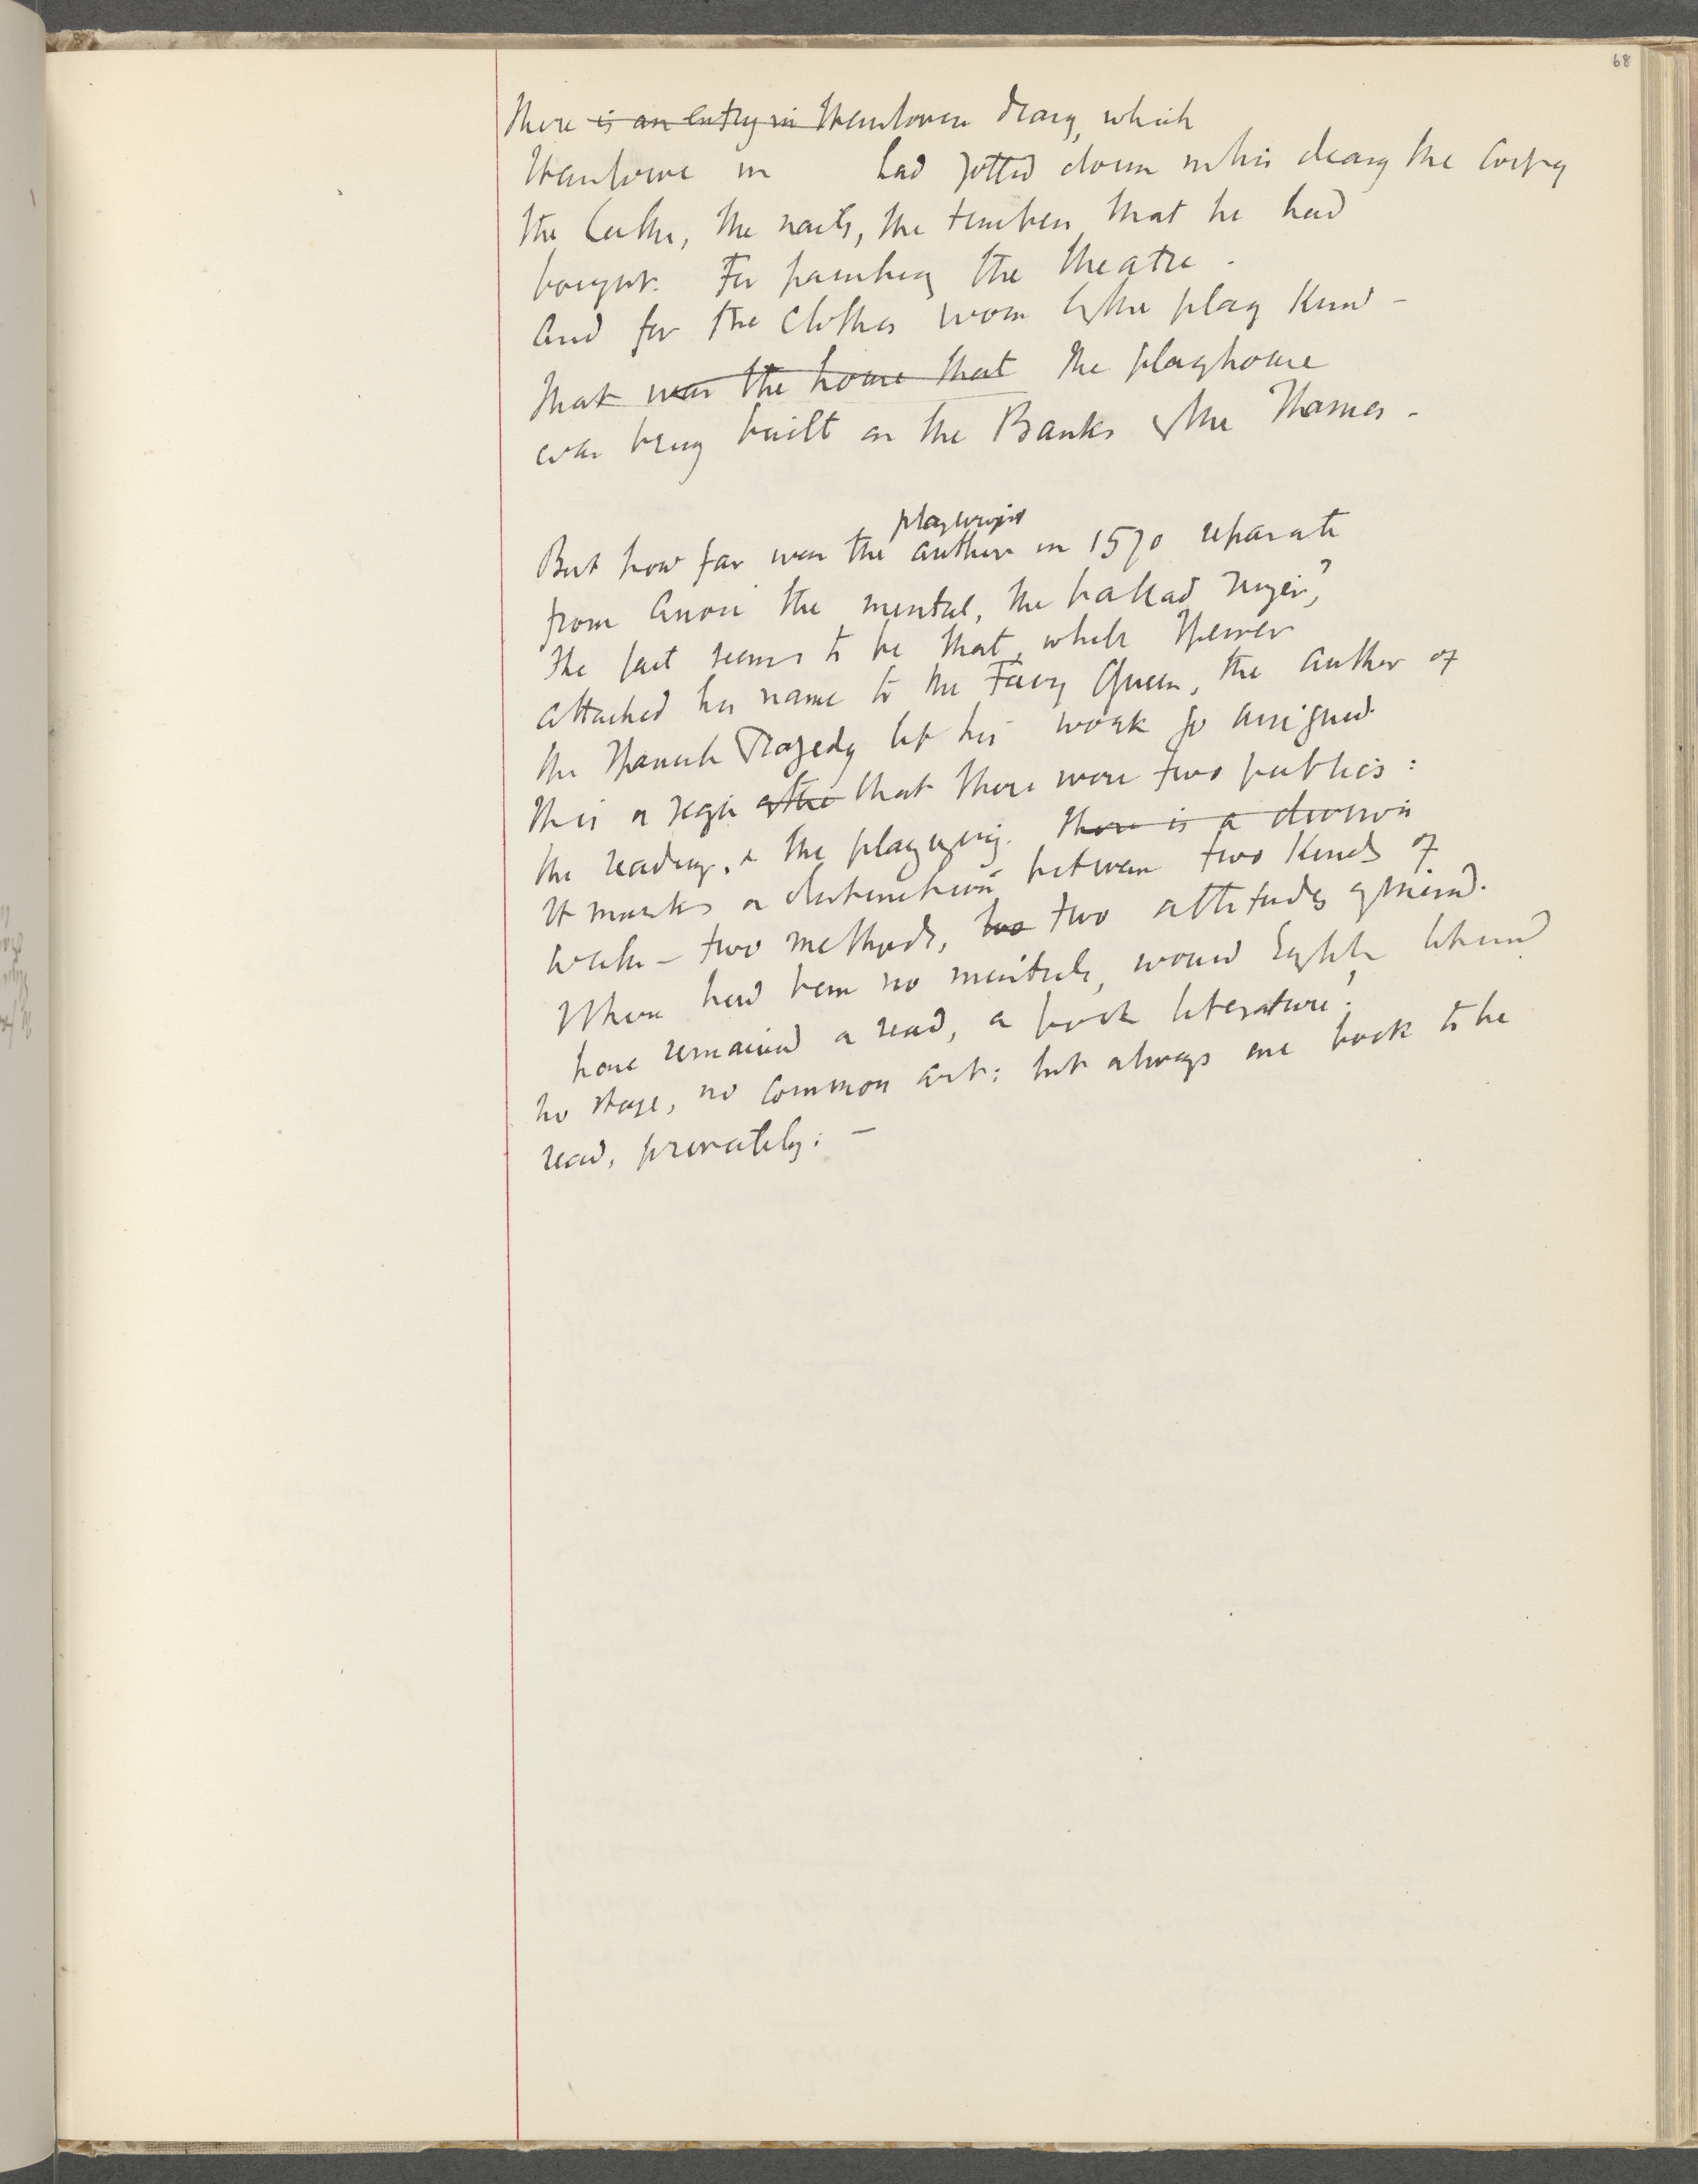 68
There is an entry in Henslowes diary, which
Henslowe in had jotted down in his diary the cost of
the laths, the nails, the timber that he had
bought. For painting the theatre.
And for the clothes worn by the play
That was the house that the playhouse
was being built on the Banks of the Thames -
playwright
But how far was the author in 1570 separate
from Anon the minstrel, the ballad singer,?
The fact seems to be that, while Spenser
attached his name to the Faery Queen, the author of
the Spanish Tragedy let his work go unsigned.
This a sign of the that there were two publics:
the reading, & the playgoing. There is a division
It marks a distinction between two kinds of
two methods, two two attitudes of mind.
Where had been no minstrels, would English literature
have remained a read, a book literature;
no stage, no common art: but always one book to be
read, privately: -